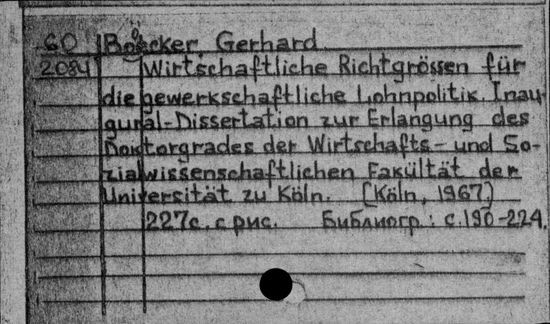 60 Boecker, Gerhard.
2084 Wirtschaftliche Richtgrössen für
die gewerkschaftliche Lohnpolitik. Inau-
gural-Dissertation zur Erlangung des
Doktorgrades der Wirtschafts- und So-
zialwissenschaftlichen Fakultät der
Universität zu Köln. [Köln, 1967]
227с. с рис. Библиогр.: с.190-224.